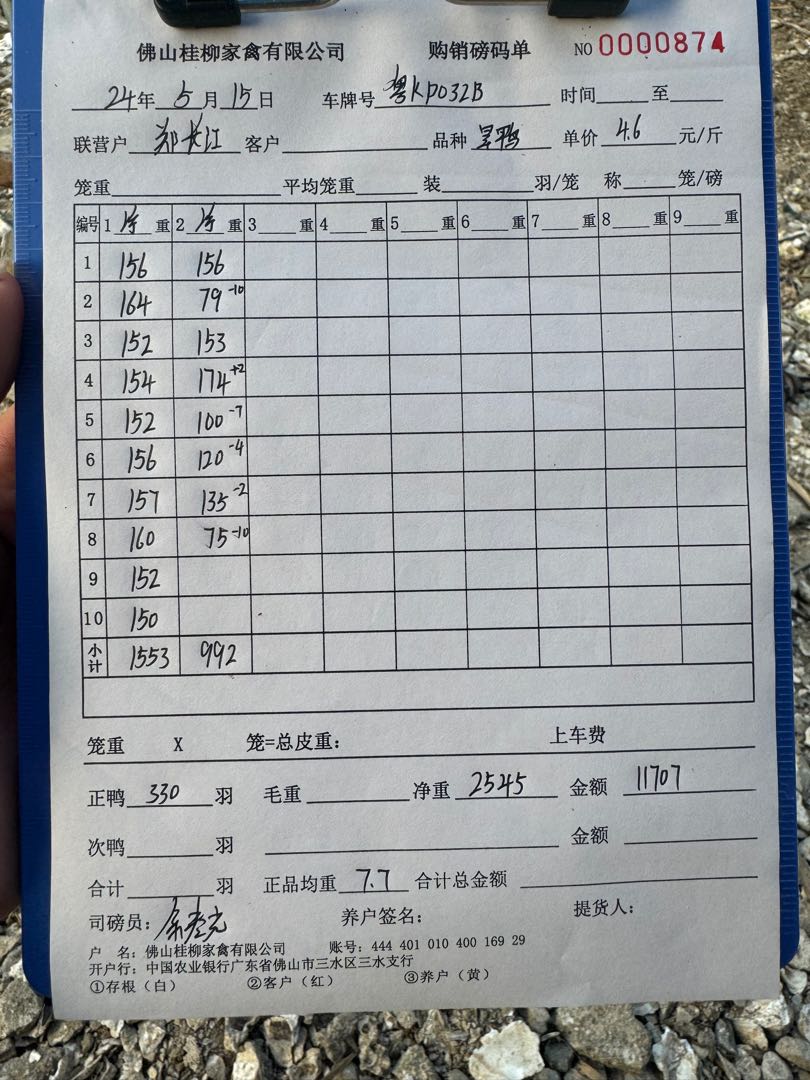 佛山桂柳家禽有限公司 购销磅码单 NO 0000874
24年 5月 15日 车牌号 粤KP032B 时间 至
联营户 郑长江 客户 品种 单价 4.6 元/斤
笼重 平均笼重 装 羽/笼 称 笼/磅
编号 1 净 重 2 净 重 3 重 4 重 5 重 6 重 7 重 8 重 9 重
1 156 156
2 164 79 -10
3 152 153
4 154 174 +2
5 152 100 -7
6 156 120 -4
7 157 135 -2
8 160 75 -10
9 152
10 150
小计 1553 992
笼重 X 笼=总皮重: 上车费
正鸭 330 羽 毛重 净重 2545 金额 11707
次鸭 羽 金额
合计 羽 正品均重 7.7 合计总金额
司磅员: 养户签名: 提货人:
户 名: 佛山桂柳家禽有限公司 账号: 444 401 010 400 169 29
开户行: 中国农业银行广东省佛山市三水区三水支行
①存根(白) ②客户(红) ③养户(黄)